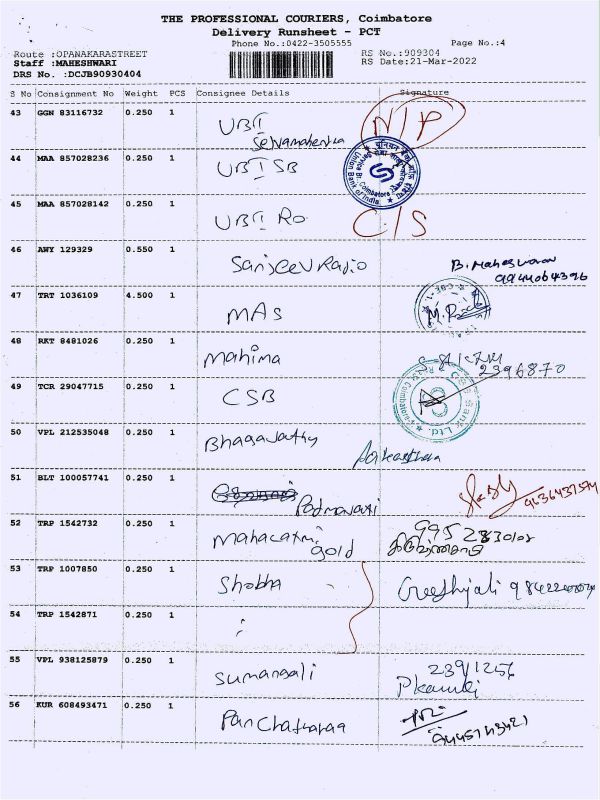 THE PROFESSIONAL COURIERS, Coimbatore
Delivery Runsheet - PCT
Phone No.:0422-3505555 Page No.:4
Route :OPANAKARASTREET RS No.:909304
Staff :MAHESHWARI RS Date:21-Mar-2022
DRS No. :DCJB90930404
S No Consignment No Weight PCS Consignee Details Signature
43 GGN 83116732 0.250 1 UBI N/P
44 MAA 857028236 0.250 1 UBI SB
Union Bank of India
45 MAA 857028142 0.250 1 UBI RO C/S
46 AWY 129329 0.550 1 Sanjeev Radio B. Maheswaran
9944064396
47 TRT 1036109 4.500 1 MAS
48 RKT 8481026 0.250 1 Mahima 2396870
49 TCR 29047715 0.250 1 CSB
50 VPL 212535048 0.250 1 Bhagavathy
51 BLT 100057741 0.250 1 Padmavati
52 TRP 1542732 0.250 1 Mahalaxmi
gold
53 TRP 1007850 0.250 1 Shobha
54 TRP 1542871 0.250 1 "
55 VPL 938125879 0.250 1 Sumangali 2391256
56 KUR 608493471 0.250 1